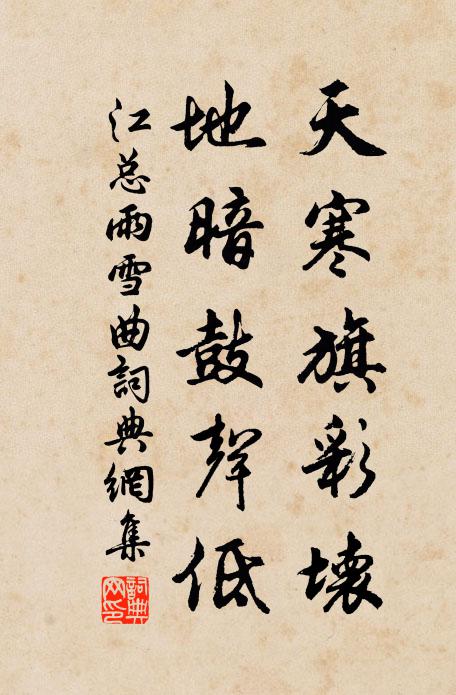 天寒旗彩壞
地暗鼓聲低
江总雨雪曲詞典網集
詞典網印